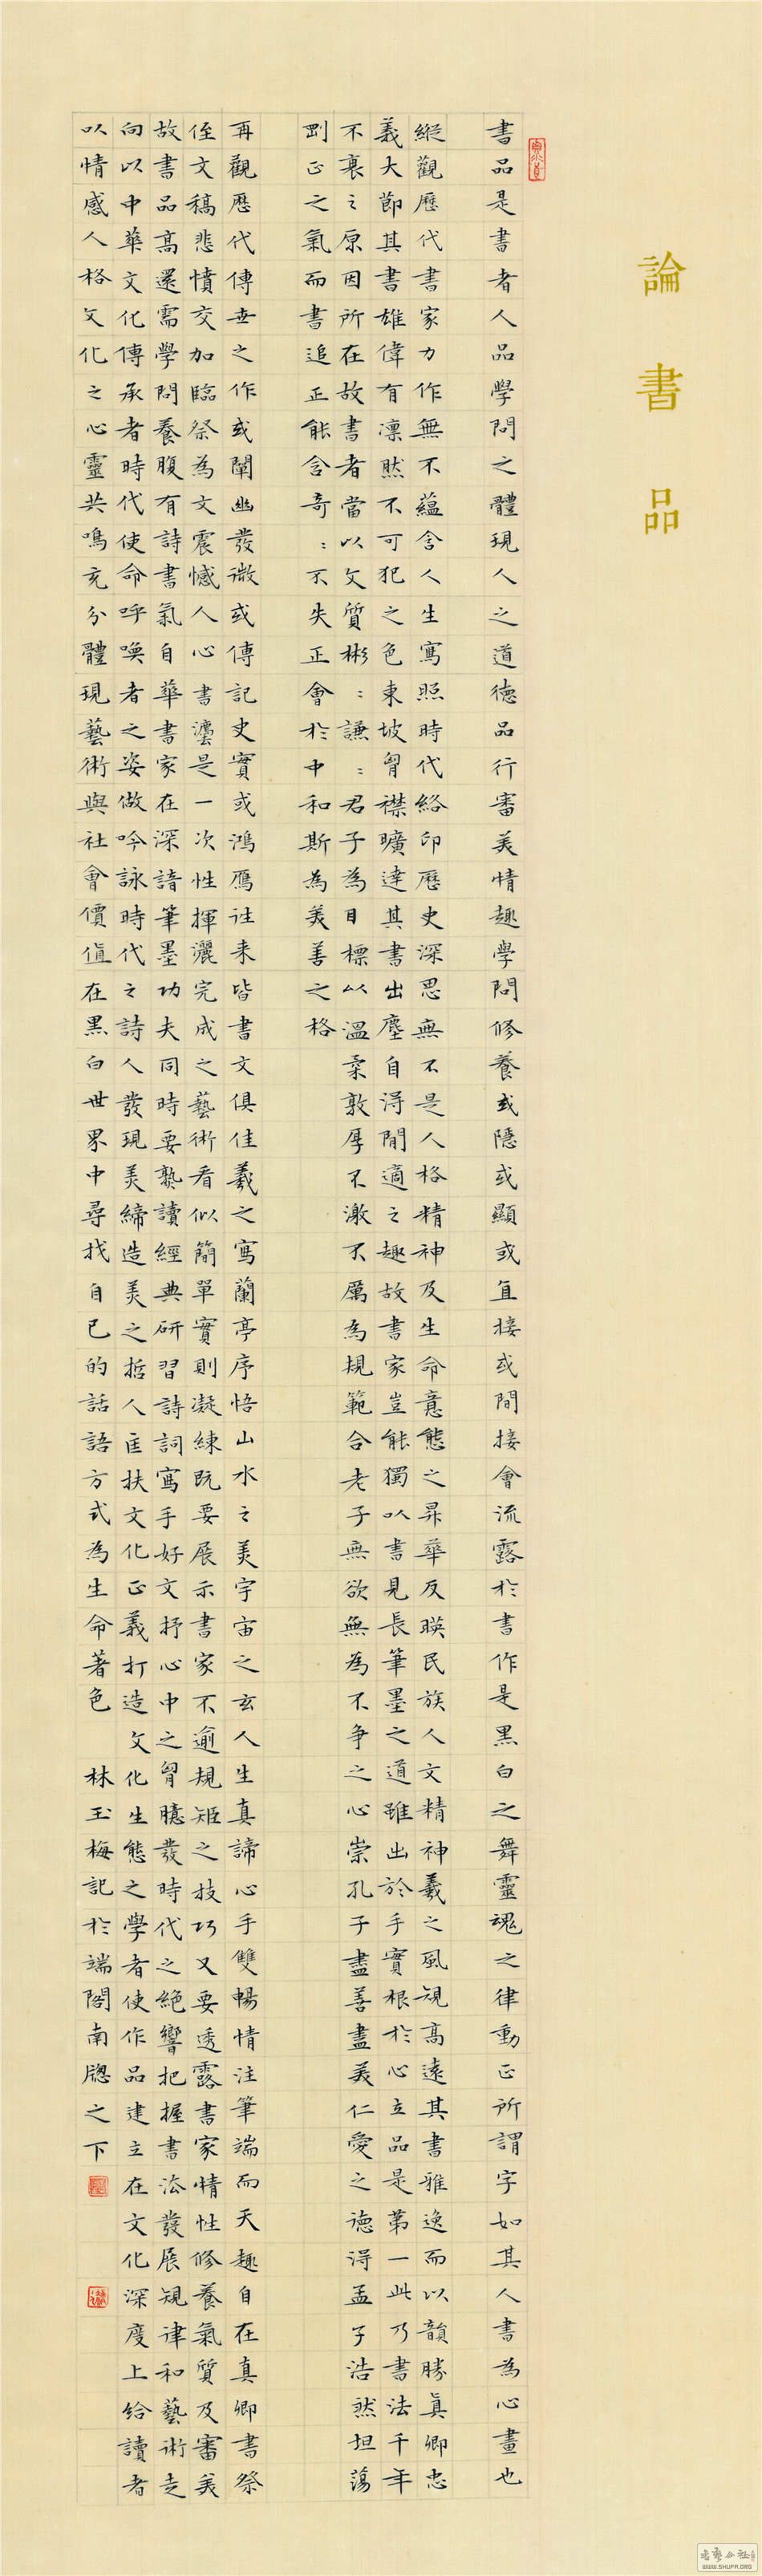 論書品
書品是書者人品學問之體現人之道德品行審美情趣學問修養或隱或顯或直接或間接會流露於書作是黑白之舞靈魂之律動正所謂字如其人書為心畫也
縱觀歷代書家力作無不蘊含人生寫照時代絡印歷史深思無不是人格精神及生命意態之昇華反映民族人文精神羲之風規高遠其書雅逸而以韻勝真卿忠
義大節其書雄偉有凜然不可犯之色東坡胷襟曠達其書出塵自得閒適之趣故書家豈能獨以書見長筆墨之道雖出於手實根於心立品是第一此乃書法千年
不衰之原因所在故書者當以文質彬：謙：君子為目標以溫柔敦厚不激不厲為規範合老子無欲無為不争之心崇孔子盡善盡美仁愛之德得孟子浩然坦蕩
剛正之氣而書追正能含奇：不失正會於中和斯為美善之格
再觀歷代傳世之作或闡幽發微或傳記史實或鴻雁往来皆書文俱佳羲之寫蘭亭序悟山水之美宇宙之玄人生真諦心手雙暢情注筆端而天趣自在真卿書祭
侄文稿悲憤交加臨祭為文震憾人心書灋是一次性揮灑完成之藝術看似簡單實則凝練既要展示書家不逾規矩之技巧又要透露書家情性修養氣質及審美
故書品高還需學問養腹有詩書氣自華書家在深諳筆墨功夫同時要熟讀經典研習詩詞寫手好文抒心中之胷臆發時代之絶響把握書法發展規律和藝術走
向以中華文化傳承者時代使命呼喚者之姿做吟詠時代之詩人發現美締造美之哲人匡扶文化正義打造文化生態之學者使作品建立在文化深度上给讀者
以情感人格文化之心靈共鳴充分體現藝術與社會價值在黑白世界中尋找自己的話語方式為生命著色 林玉梅記於端閣南牕之下
WWW.SHUFA.ORG